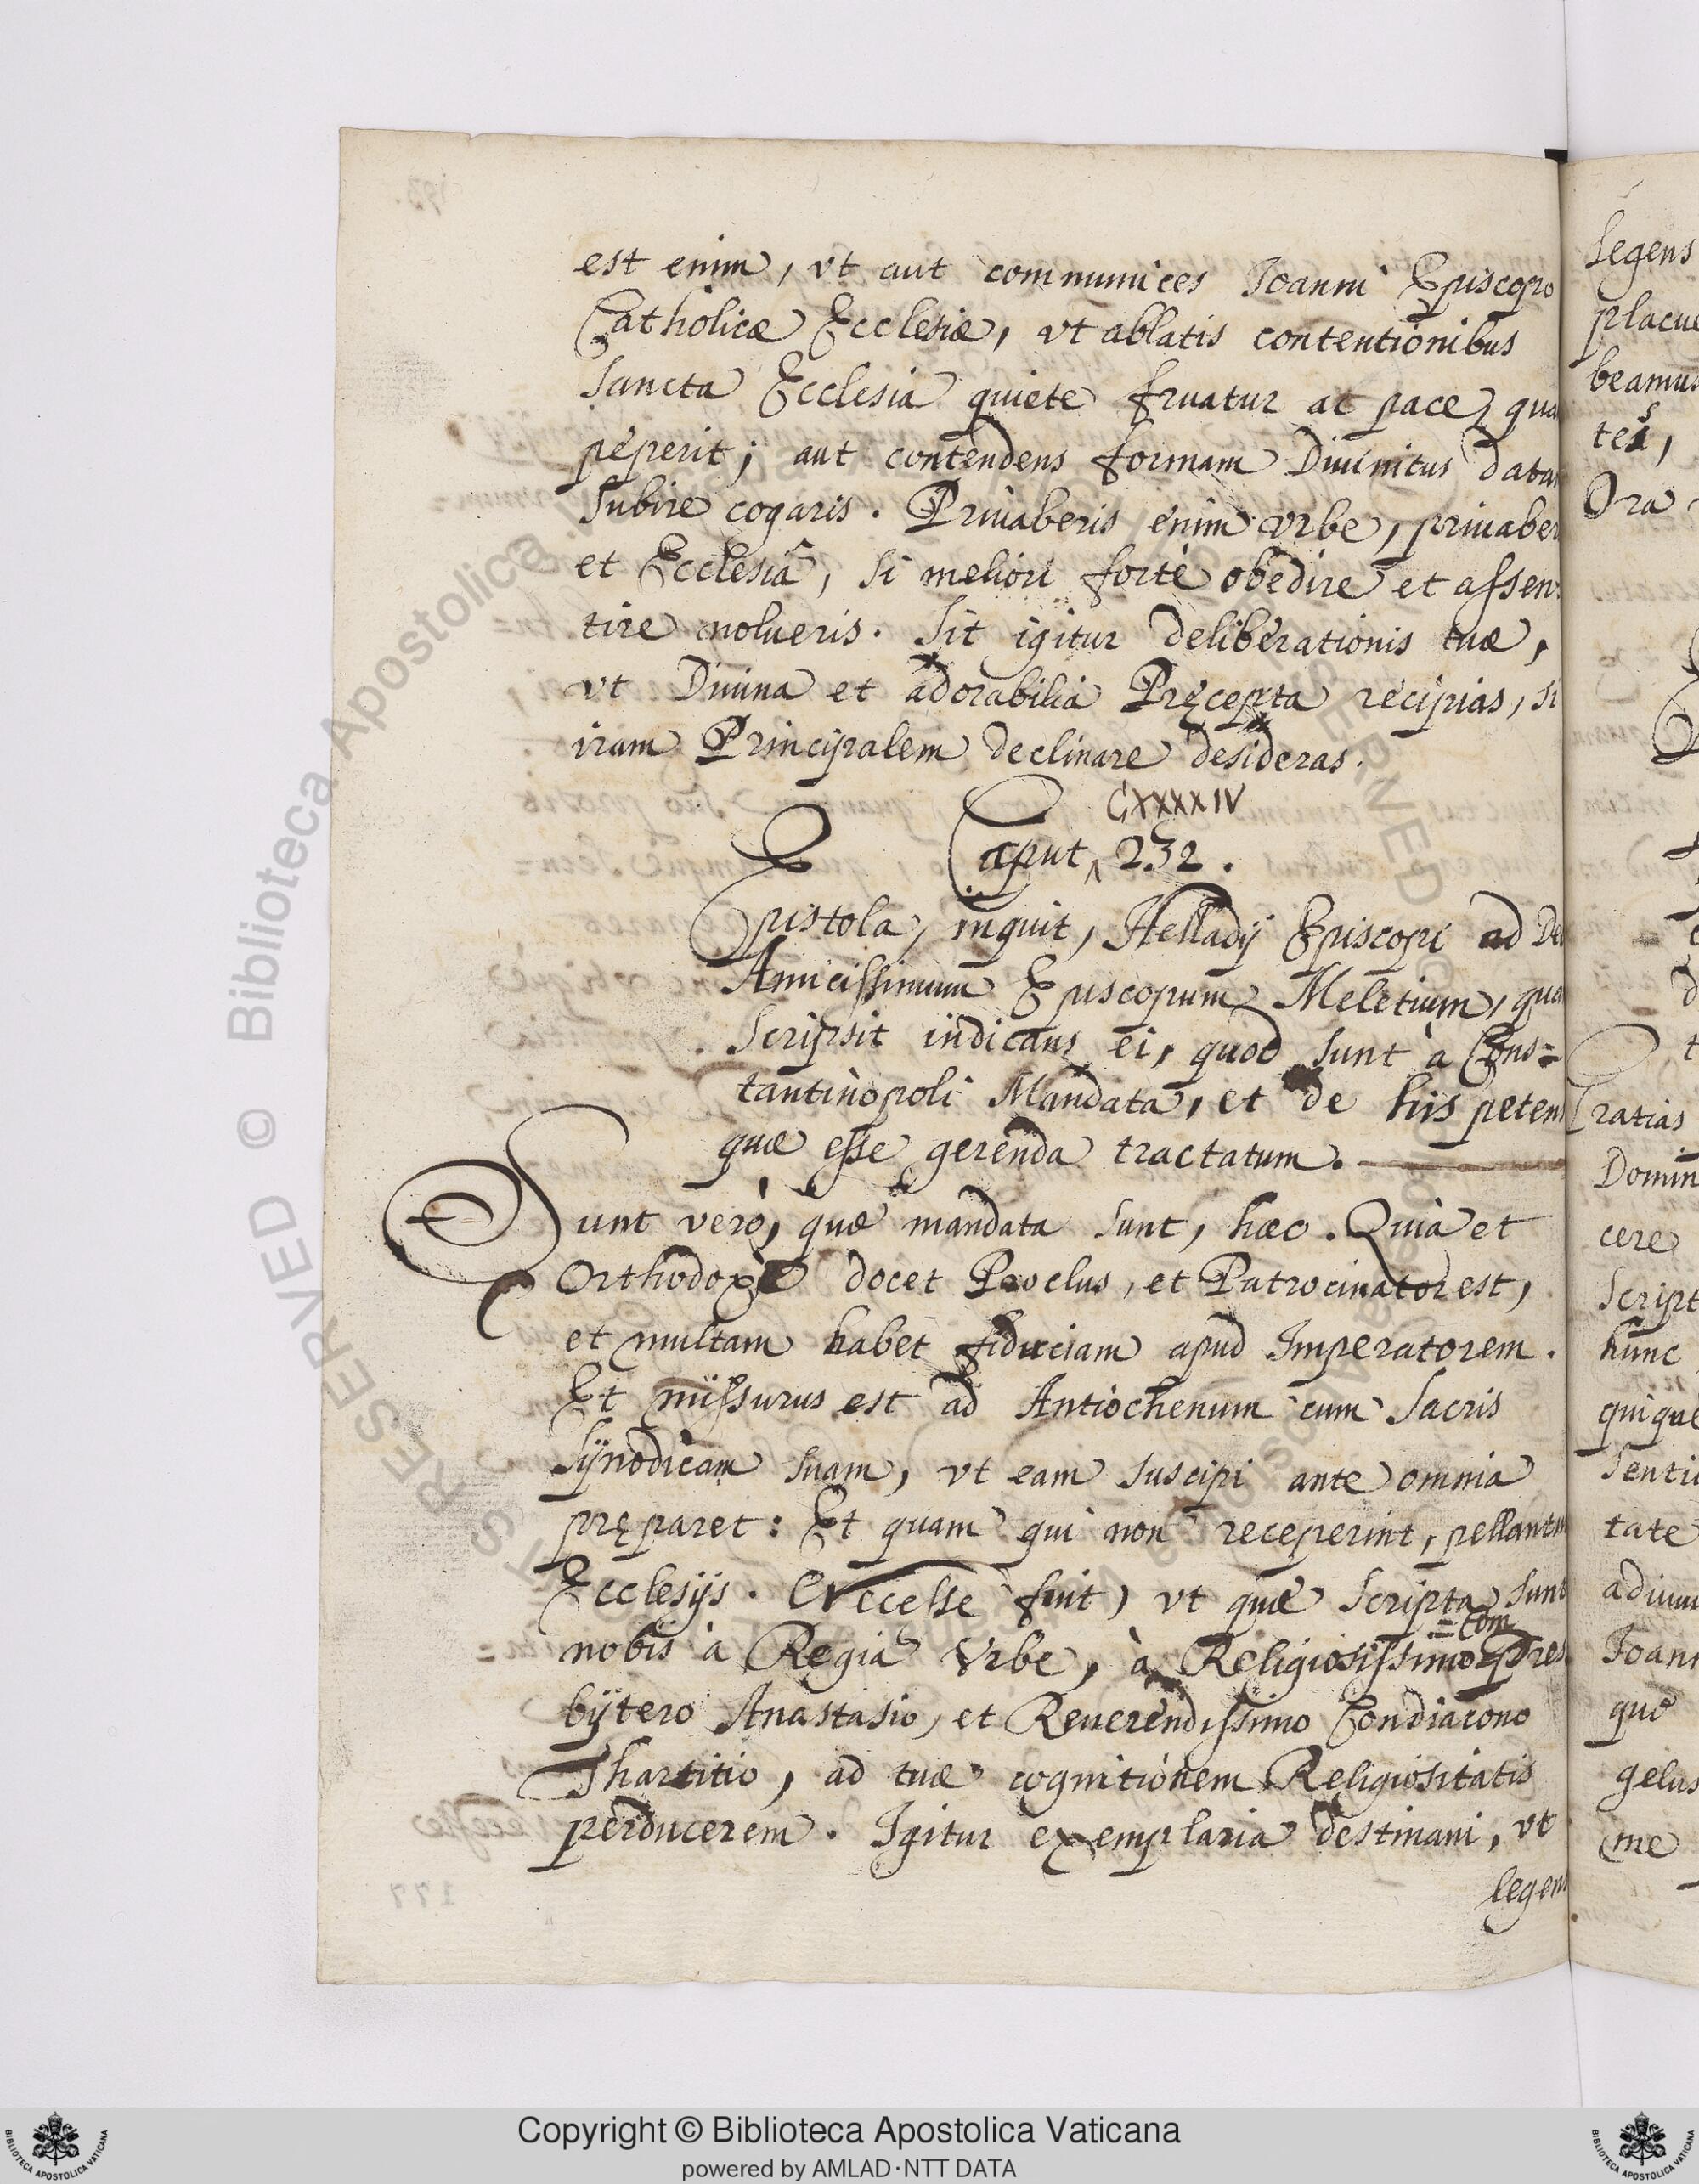 est enim, vt aut communices Ioanni Episcopo
Catholicæ Ecclesiæ, vt ablatis contentionibus
Sancta Ecclesia quiete fruatur ac pace, qua
peperit; aut contendens formam Diuinitus data
Subire cogaris. Priuaberis enim vrbe, priuaber
et Ecclesiâ, si meliori forte obedire et assen:
tire nolueris. Sit igitur deliberationis tuæ,
vt Diuina et adorabilia Pręcepta recipias, si
iram Principalem declinare desideras.
CXXXXIV
Caput ^ 232.
Epistola, inquit, Helladij Episcopi ad De
Amicissimum Episcopum Meletium, qua
Scripsit indicans ei, quod sunt à Cons=
tantinopoli Mandata, et de his peten
quæ esse gerenda tractatum.
Sunt verò, quæ mandata sunt, hæc. Quia et
Orthodoxè docet Proclus, et Patrocinator est,
et multam habet fiduciam apud Imperatorem.
Et missurus est ad Antiochenum cum Sacris
Sÿnodicam suam, vt eam suscipi ante omnia
pręparet: Et quam qui non receperint, pellantu
Ecclesijs. Necesse fuit, vt quæ scripta sunt
nobis à Regia Vrbe, à Religiosissimo =Com Pres
bÿtero Anastasio, et Reuerendissimo Condiacono
Thartitio, ad tuæ cognitionem Religiositatis
perducerem. Igitur exemplaria destinani, vt
legen
legens
placue
beamus
tes,
Ora
t
Gratias
Domin
cere
Script
hunc
quique
Senti
tate
adiuu
Ioann
quo
gelus
me
193.
177
RESERVED © Biblioteca Apostolica
Copyright © Biblioteca Apostolica Vaticana
powered by AMLAD·NTT DATA
BIBLIOTECA APOSTOLICA VATICANA
BIBLIOTECA APOSTOLICA VATICANA